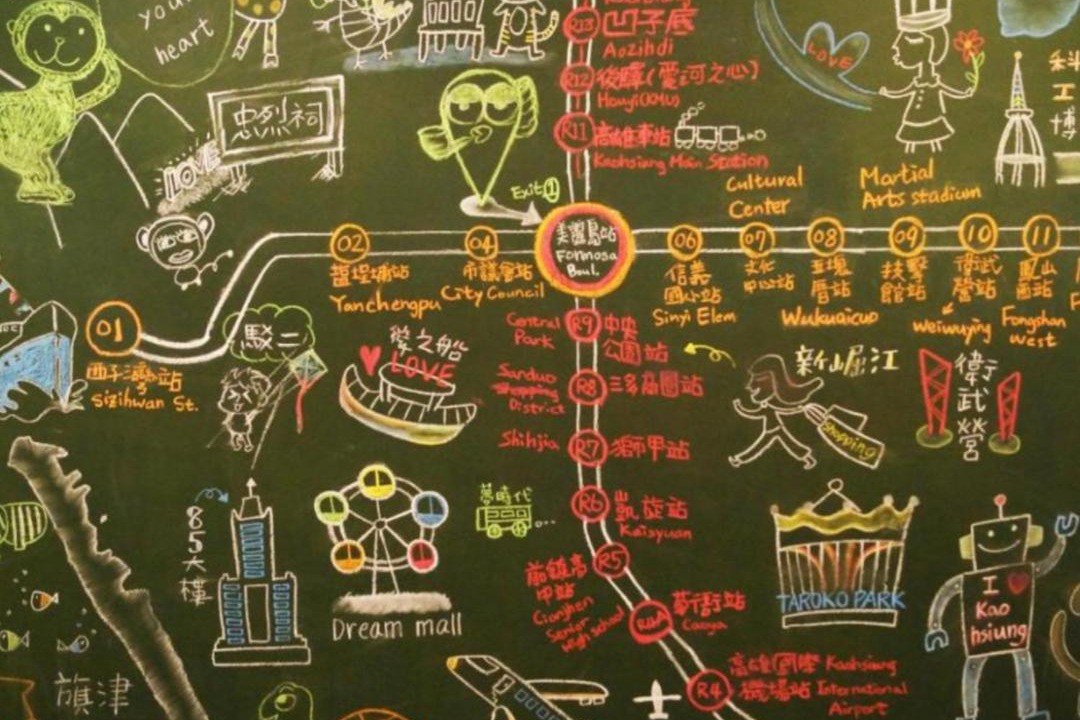 your
heart
R13 凹子底
Aozihdi
R12 後驛(愛河之心)
Houyi(KMU)
R11 高雄車站
Kaohsiung Main Station
忠烈祠
LOVE
LOVE
科
工
博
Exit①
Cultural
Center
Martial
Arts stadium
美麗島站
Formosa
Boul.
02
鹽埕埔站
Yanchengpu
04
市議會站
City Council
06
信義
國小站
Sinyi Elem
07
文化
中心站
08
五塊
厝站
Wukuaicuo
09
技擊
館站
10
衛武
營站
weiwuying
11
鳳山
西站
Fongshan
West
01
西子灣站
Sizihwan St.
駁二
愛之船
LOVE
Central
Park
R9 中央
公園站
Sanduo
Shopping
District
R8 三多商圈站
Shihjia
R7 獅甲站
R6 凱旋站
Kaisyuan
R5
前鎮高
中站
Cianjhen
Senior
High school
R4A 草衙站
Caoya
R4 高雄國際
機場站
Kaohsiung
International
Airport
新崛江
Shopping
衛
武
營
85大樓
Dream mall
夢時代
TAROKO PARK
I
Kao
hsiung
旗津